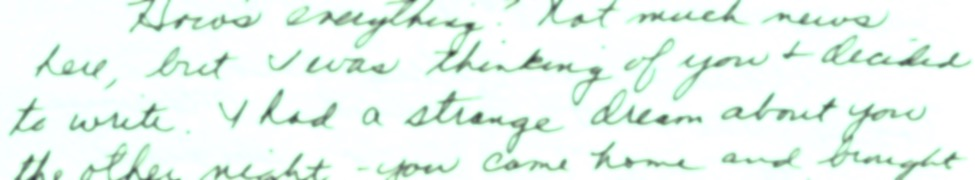 How's everything? Not much news
here, but I was thinking of you + decided
to write. I had a strange dream about you
the other night - you came home and brought